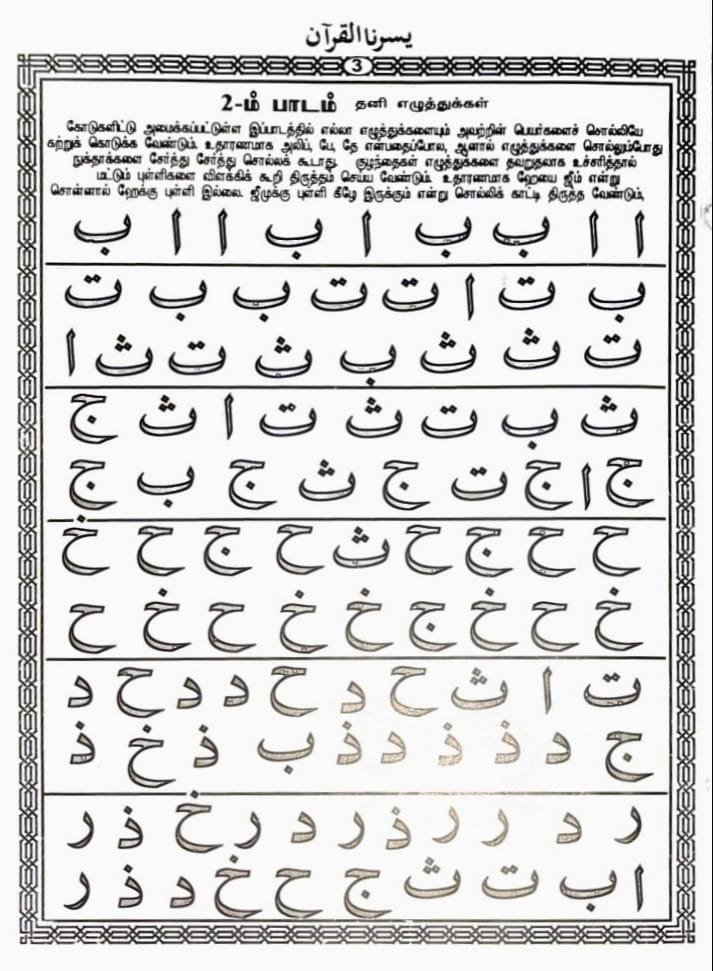 يسرنا القرآن
3
2-ம் பாடம் தனி எழுத்துக்கள்
கோடுகளிட்டு அமைக்கப்பட்டுள்ள இப்பாடத்தில் எல்லா எழுத்துக்களையும் அவற்றின் பெயர்களைச் சொல்லியே
கற்றுக் கொடுக்க வேண்டும். உதாரணமாக அலிப், பே, தே என்பதைப்போல, ஆனால் எழுத்துக்களை சொல்லும்போது
நுக்தாக்களை சேர்த்து சேர்த்து சொல்லக் கூடாது. குழந்தைகள் எழுத்துக்களை தவறுதலாக உச்சரித்தால்
மட்டும் புள்ளிகளை விளக்கிக் கூறி திருத்தம் செய்ய வேண்டும். உதாரணமாக ஹேயை ஜீம் என்று
சொன்னால் ஹேக்கு புள்ளி இல்லை. ஜீமுக்கு புள்ளி கீழே இருக்கும் என்று சொல்லிக் காட்டி திருத்த வேண்டும்,
ا ا ب ب ا ب ا ا ب
ب ت ا ت ت ب ب ت
ت ث ث ب ث ت ث ا
ث ب ت ث ت ا ث ج
ج ا ج ت ج ث ج ب ج
ح ح ج ح ث ح ج ح خ
خ ح خ ج خ خ ح خ ح
ت ا ث ح د ح د د ح د
ج د ذ ذ د ذ ب ذ خ ذ
ر د ر ر ذ ر د ر خ ذ ر
ا ب ت ث ج ح خ د ذ ر